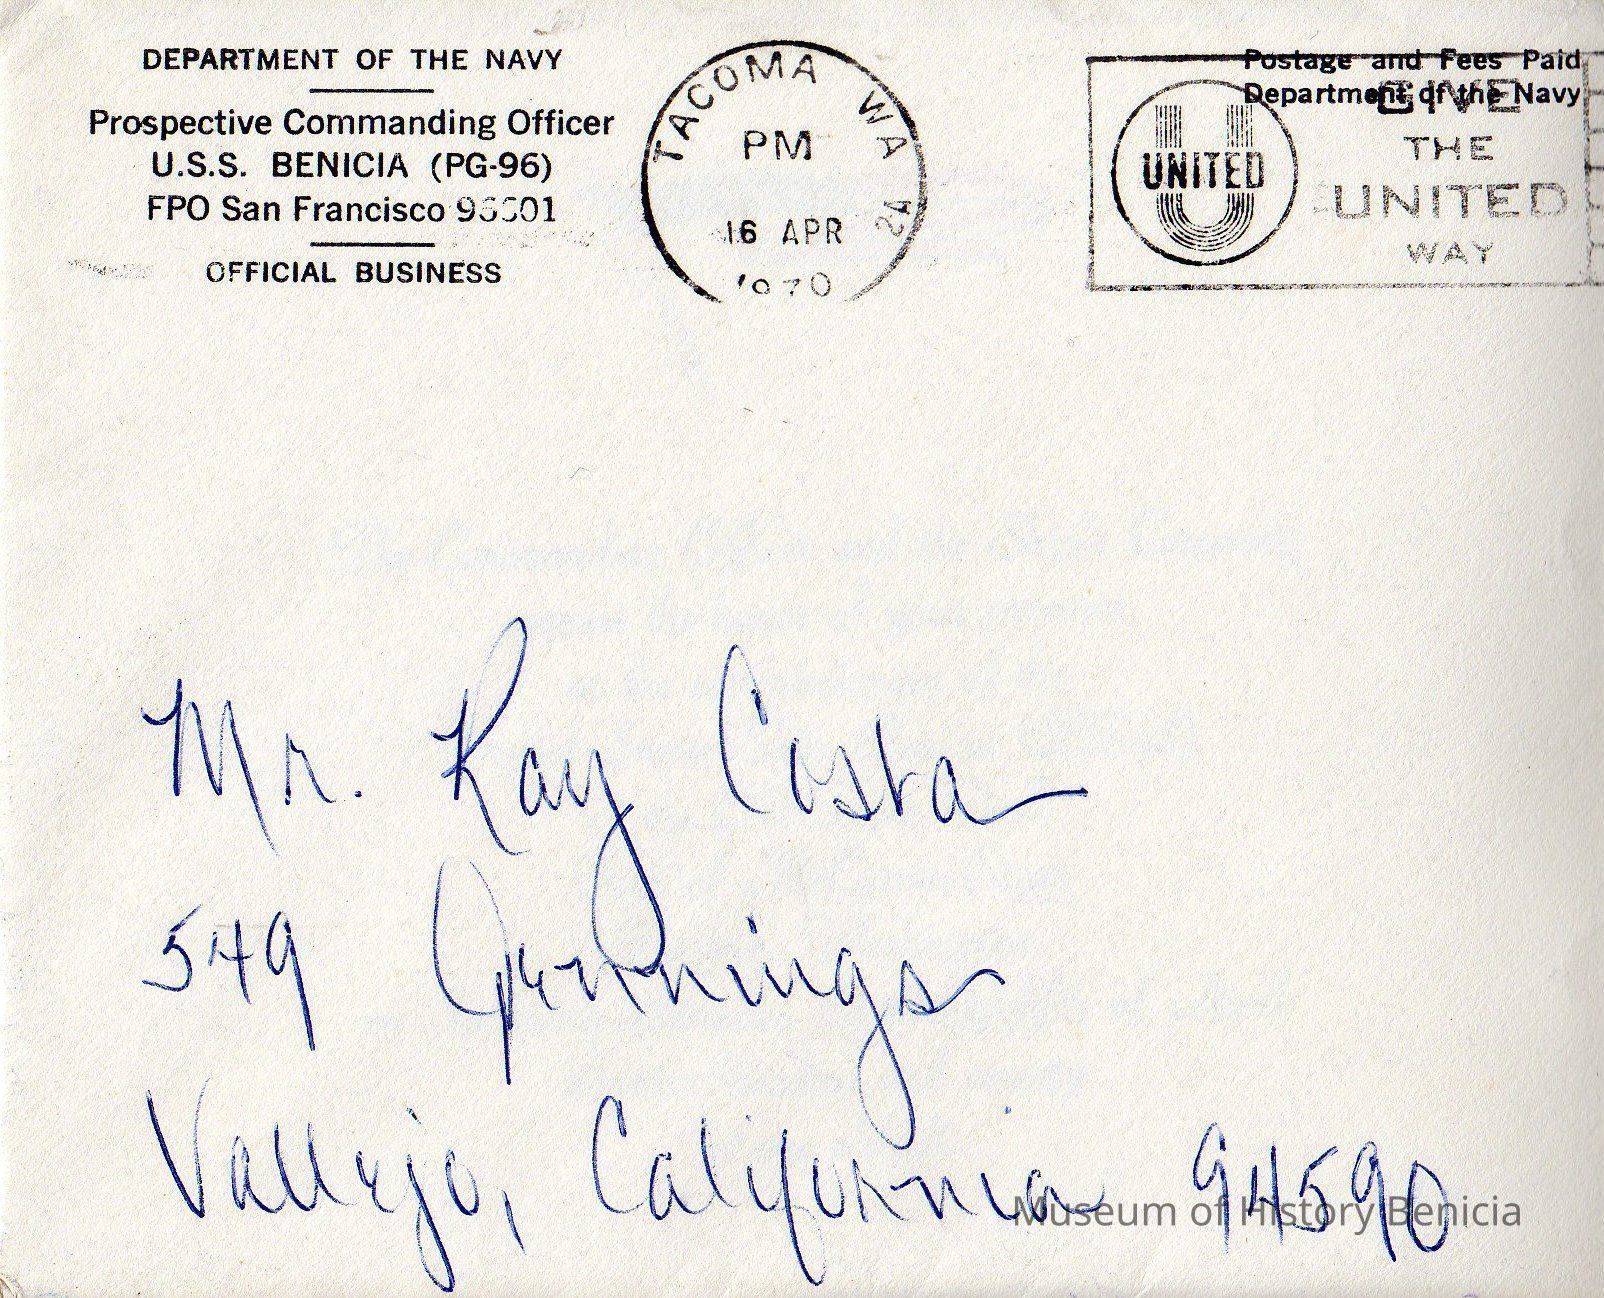 DEPARTMENT OF THE NAVY
Prospective Commanding Officer
U.S.S. BENICIA (PG-96)
FPO San Francisco 96601
OFFICIAL BUSINESS
TACOMA WA
PM
16 APR
1970
Postage and Fees Paid
Department of the Navy
UNITED
GIVE
THE
UNITED
WAY
Mr. Ray Costa
549 Jennings
Vallejo, California 94590
Museum of History Benicia